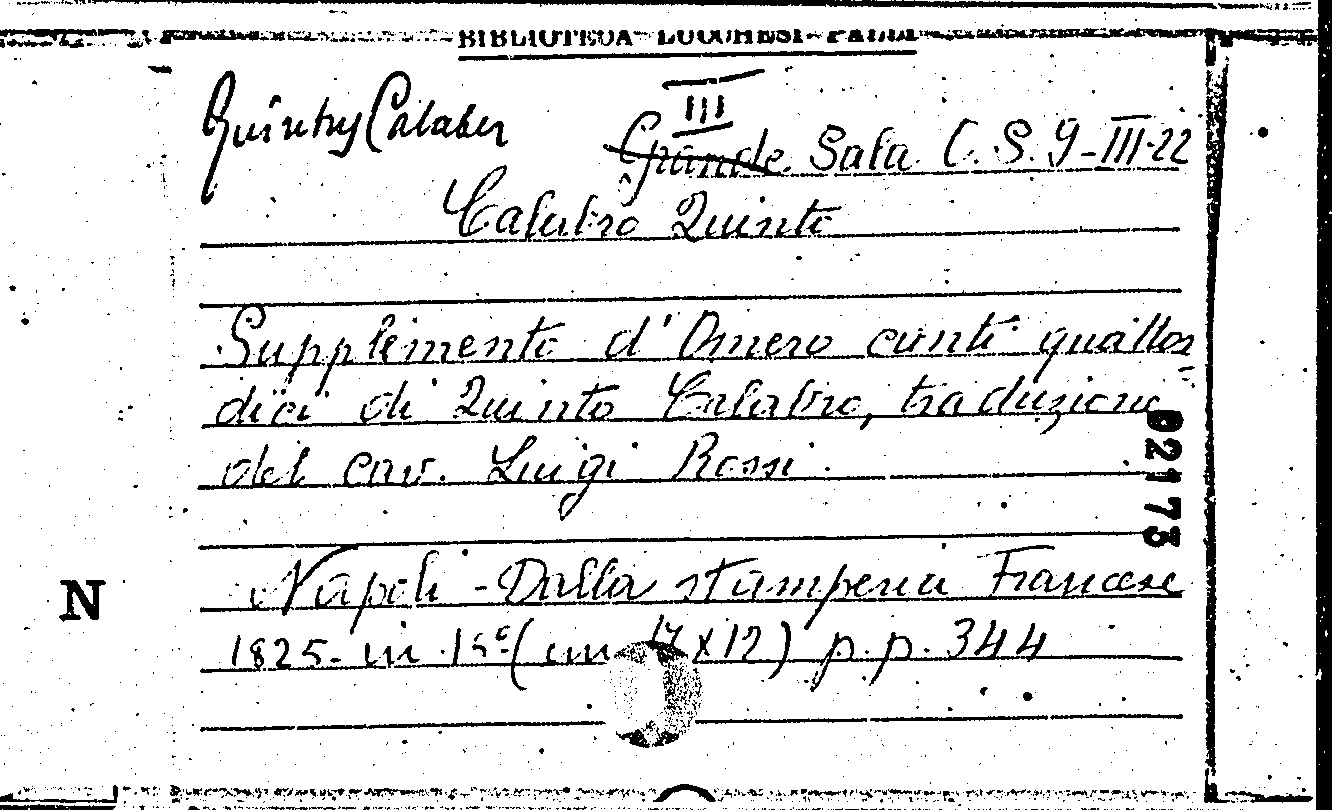 BIBLIOTECA LUCCHESI-PALLI
III
Quintus Calaber
Grande Sala C. S. 9-III-22
Calabro Quinto
Supplemento d'Omero canti quattor
dici di Quinto Calabro, traduzione
del cav. Luigi Rossi.
02173
Napoli - Dalla stamperia Francese
N
1825- in 15º (cm 17x12) p.p. 344